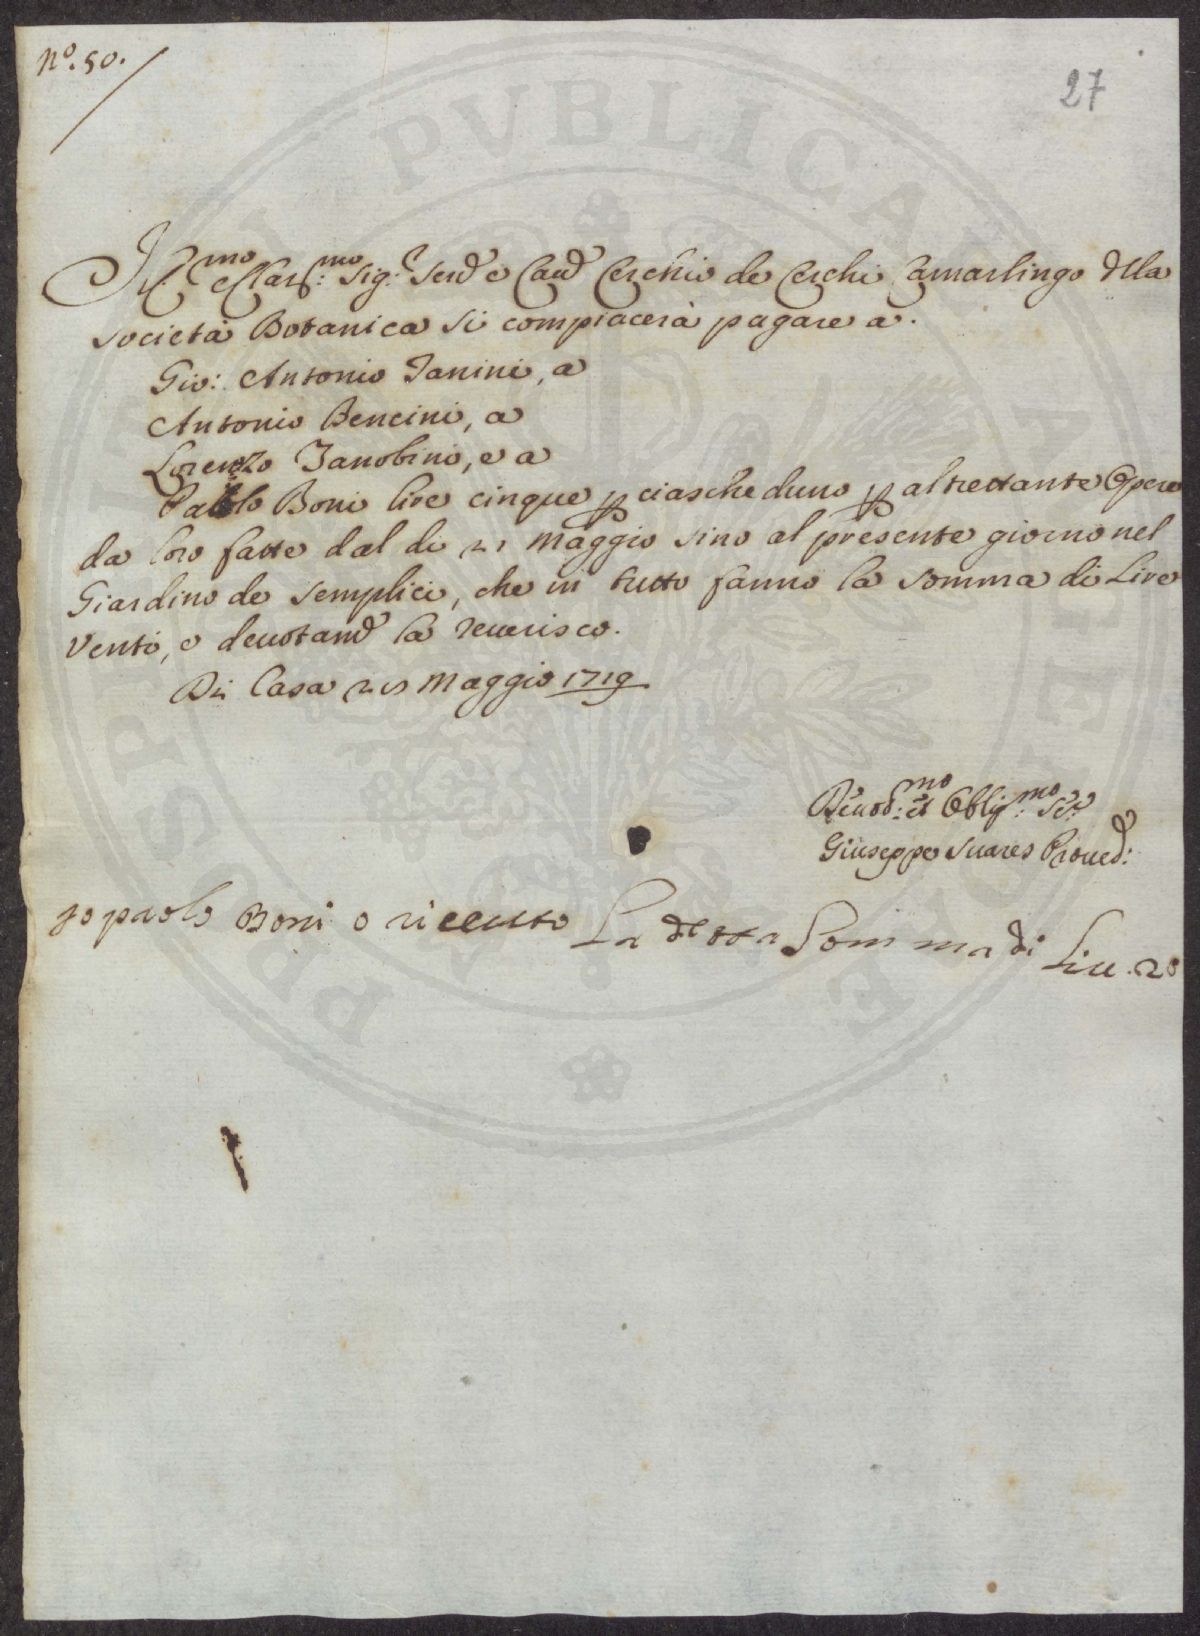 N.º 50.
27
Ill.mo e Clar.mo Sig.r Sen.e e Cav.e Cerchio de Cerchi Camarlingo della
società Botanica si compiacerà pagare a.
Gio: Antonio Janini, a
Antonio Bencini, a
Lorenzo Zanobini, e a
Paolo Boni lire cinque p ciascheduno p altrettante Opere
da loro fatte dal di 21 Maggio sino al presente giorno nel
Giardino de semplici, che in tutto fanno la somma di Lire
Venti, e devotam.e la reverisco.
Di Casa 25 Maggio 1719
Devot.mo et Oblig.mo Se.re
Giuseppe Suares Proved.e:
Jo paolo Boni o riceuuto La detta Somma di Lire. 20
PVBLICAE